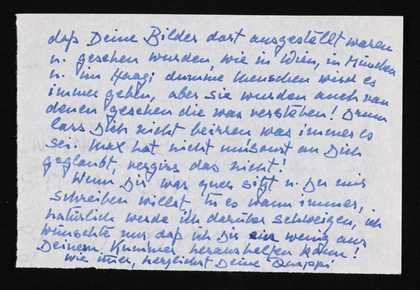 daß Deine Bilder dort ausgestellt waren
u. gesehen wurden, wie in Wien, in München
u. im Haag! dumme Menschen wird es
immer geben, aber sie wurden auch von
denen gesehen die was verstehen! Drum
lass Dich nicht beirren was immer es
sei. Max hat nicht umsonst an Dich
geglaubt, vergiss das nicht!
Wenn Dir was quer sitzt u. Du mir
schreiben willst tu es wann immer,
natürlich werde ich darüber schweigen, ich
wünschte nur daß ich Dir ein wenig aus
Deinem Kummer heraushelfen könn!
wie immer, herzlichst Deine Quappi